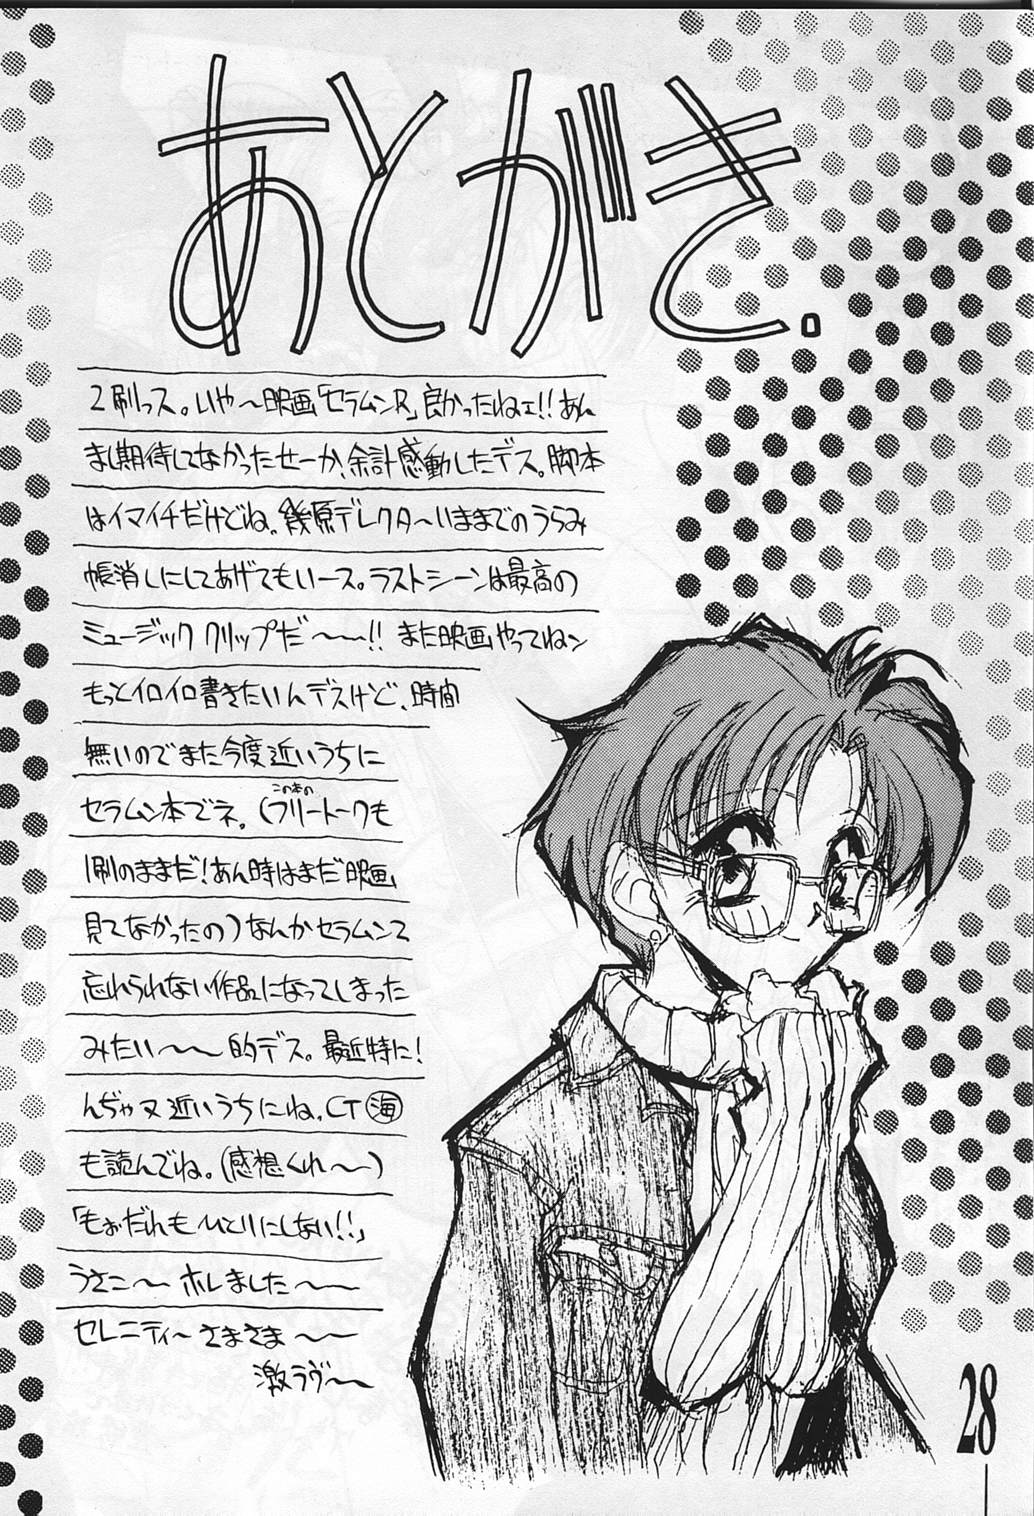 あとがき.
2刷っス。いや〜映画「セラムンR」良かったねェ!!あん
まし期待してなかったせーか、余計感動したデス。脚本
はイマイチだけどね。幾原デレクタ〜いままでのうらみ
帳消しにしてあげてもいース。ラストシーンは最高の
ミュージッククリップだ〜〜!! また映画やってねン
もっとイロイロ書きたいんデスけど、時間
無いのでまた今度近いうちに
セラムン本でネ。(この本のフリートークも
1刷のままだ!あん時はまだ映画
見てなかったの)なんかセラムンて
忘れられない作品になってしまった
みたい〜〜的デス。最近特に!
んぢゃヌ近いうちにね。CT海
も読んでね。(感想くれ〜〜)
「もぉだれもひとりにしない!!」
うさこ〜 ホレました〜〜
セレニティ〜さまさま〜〜
激ラヴ〜
28